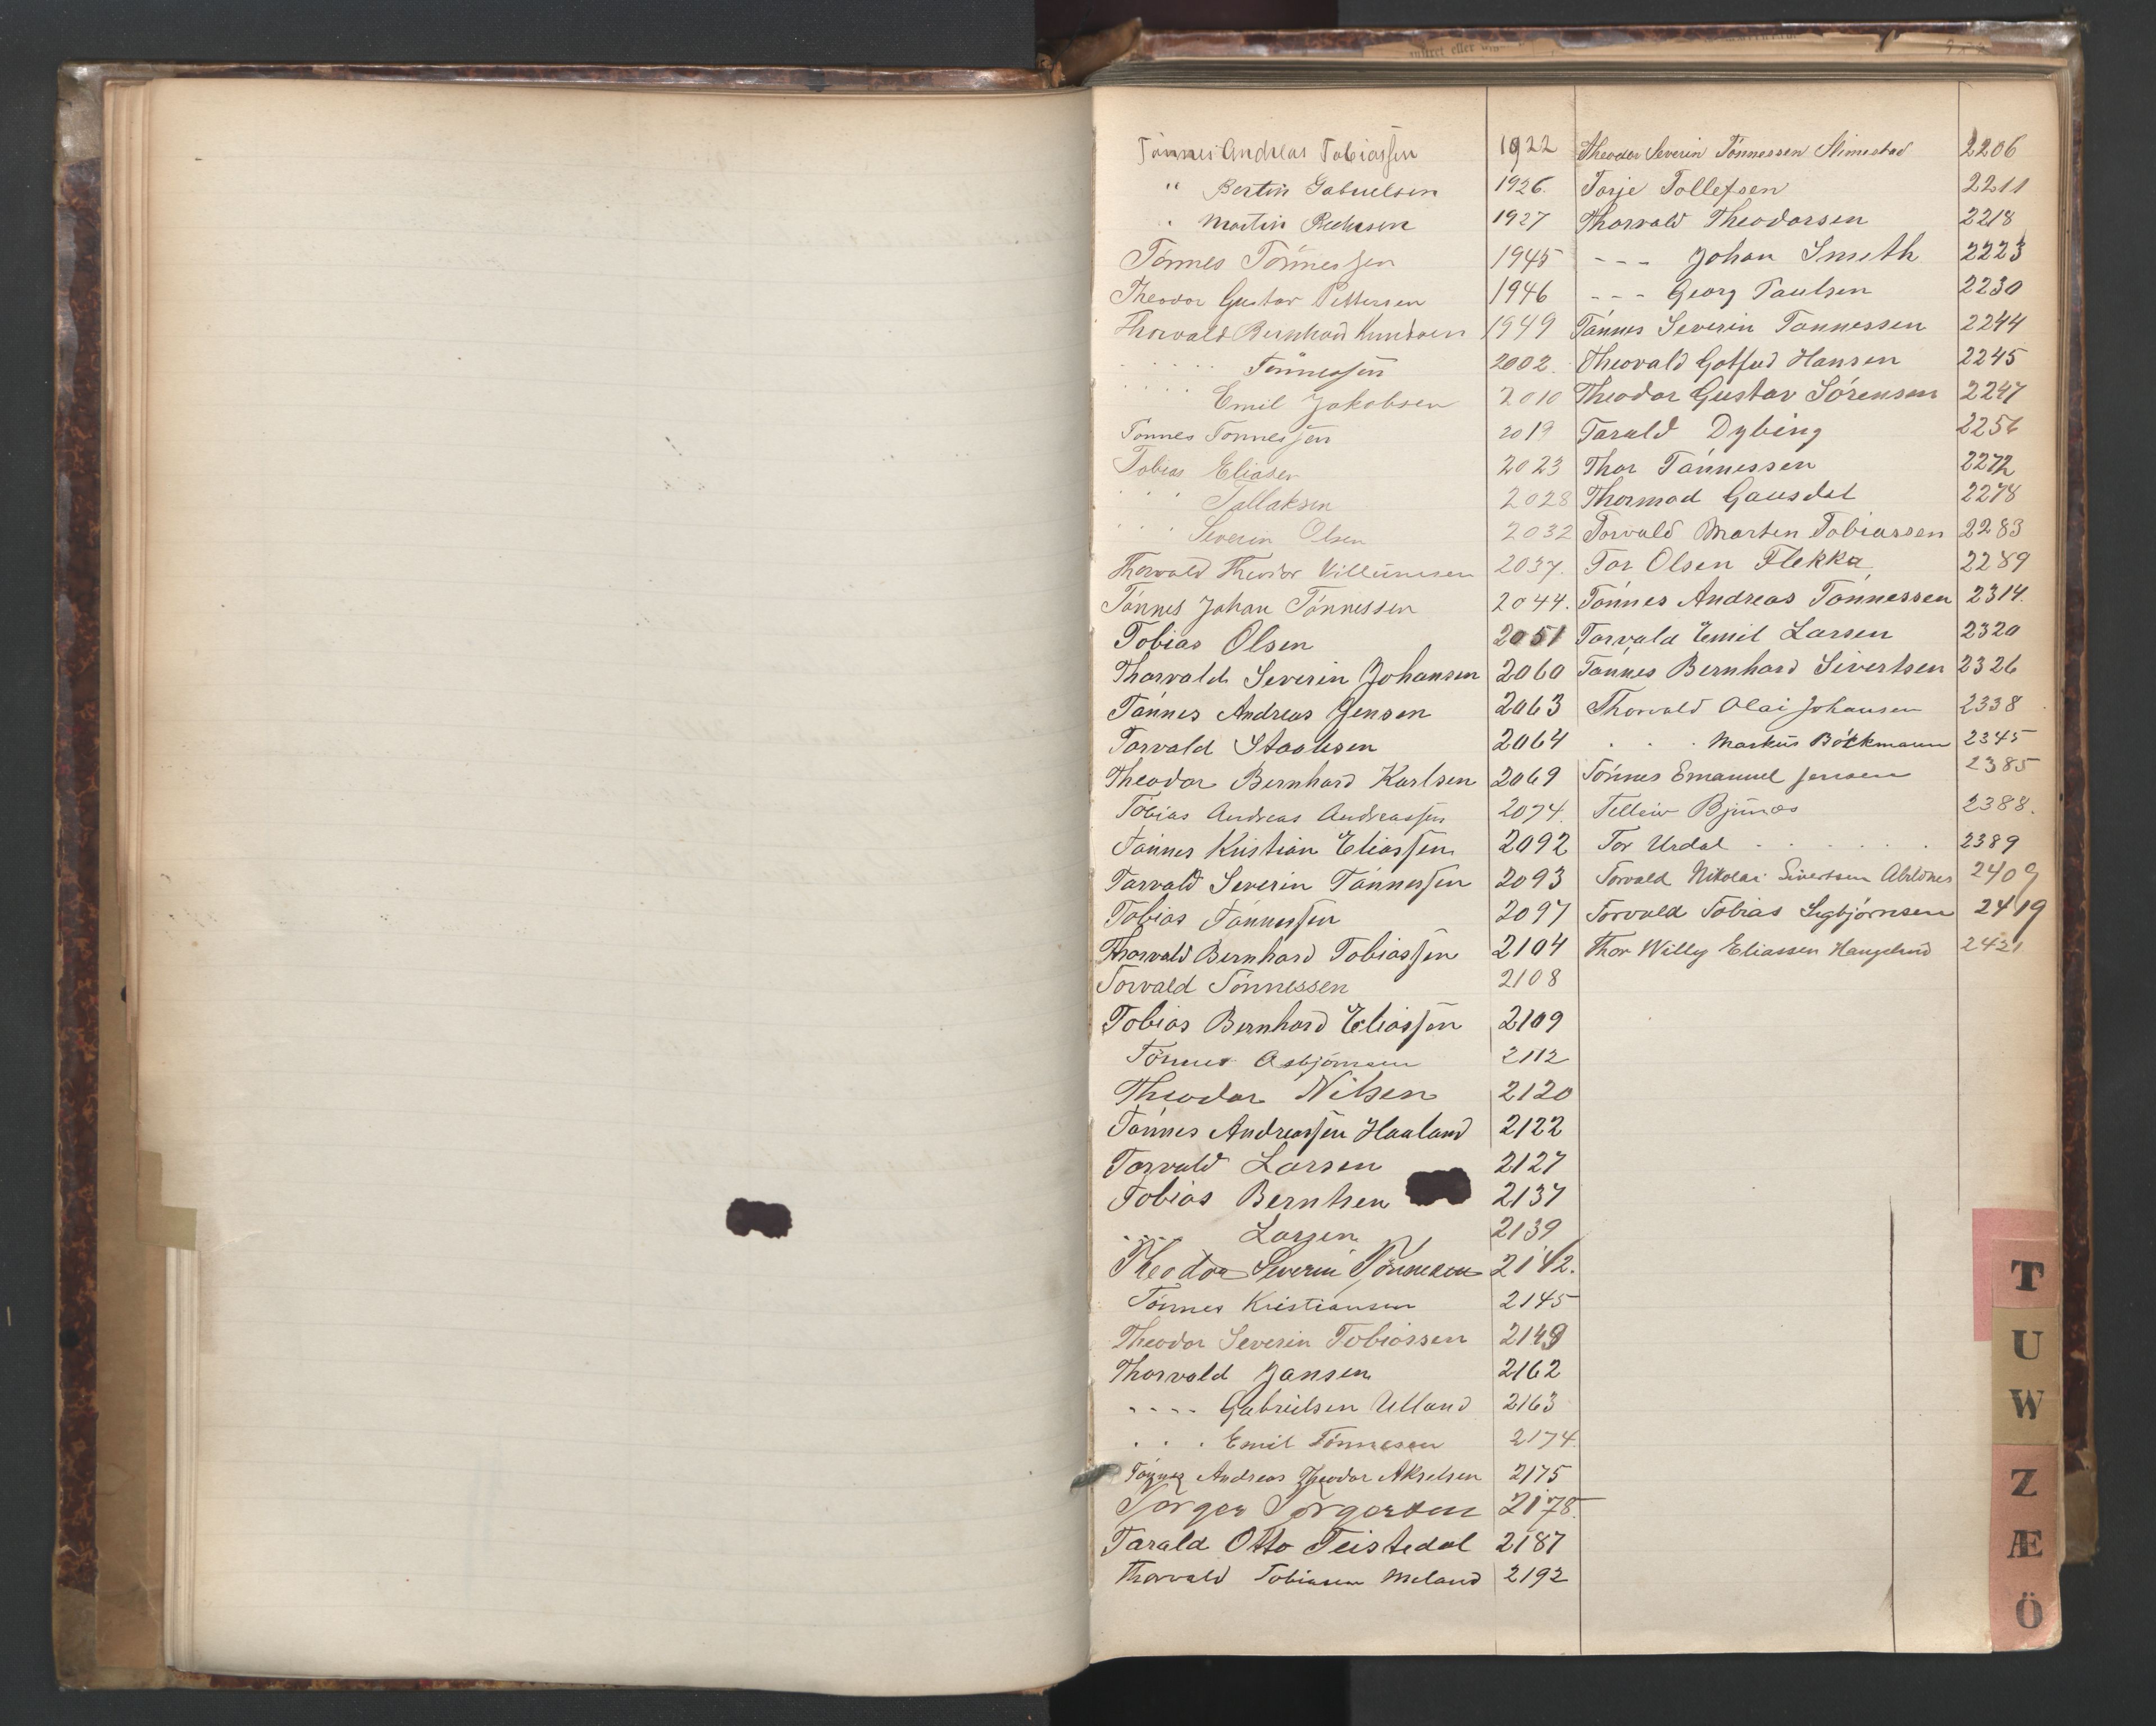 Tönnes Andreas Tobiassen 1922
" Bertin Gabrielsen 1926.
" Martin Pedersen 1927
Tönnes Tönnessen 1945
Theodor Gustav Pettersen 1946
Thorvald Bernhard Knudsen 1949
. . . . . Tönnessen 2002.
. . . . Emil Jakobsen 2010
Tonnes Tonnessen 2019
Tobias Eliasen 2023
. . . Tallaksen 2028
. . . Severin Olsen 2032
Thorvald Theodor Villumsen 2037.
Tönnes Johan Tönnessen 2044.
Tobias Olsen 2051
Thorvald Severin Johansen 2060
Tönnes Andreas Jensen 2063
Torvald Staalesen 2064
Theodor Bernhard Karlsen 2069
Tobias Andreas Andreassen 2074.
Tönnes Kristian Eliassen 2092
Torvald Severin Tönnessen 2093
Tobias Tönnessen 2097
Thorvald Bernhard Tobiassen 2104
Torvald Tönnessen 2108
Tobias Bernhard Eliassen 2109
Tönnes Asbjörnsen 2112
Theodor Nilsen 2120
Tönnes Andreassen Haaland 2122
Torvald Larsen 2127
Tobias Berntsen 2137
- - - Larsen 2139
Theodor Severin Tönnesen 2142.
Tönnes Kristiansen 2145
Theodor Severin Tobiassen 2149
Thorvald Jansen 2162
- - - - Gabrielsen Ulland 2163
. . . Emil Tönnesen 2174.
Tönnes Andreas Theodor Akselsen 2175
Torger Torgersen 2178.
Tarald Otto Teistedal 2187
Thorvald Tobiasen Meland 2192
Theodor Severin Tönnessen Slimestad 2206
Torje Tollefsen 2211
Thorvald Theodorsen 2218
- - - Johan Smith 2223
- - - Georg Paulsen 2230
Tönnes Severin Tonnessen 2244
Theovald Gotfred Hansen 2245
Theodor Gustav Sörensen 2247
Tarald Dybing 2256
Thor Tönnessen 2272
Thormod Gausdal 2278
Torvald Marten Tobiassen 2283
Tor Olsen Flekka 2289
Tönnes Andreas Tönnessen 2314.
Torvald Emil Larsen 2320
Tönnes Bernhard Sivertsen 2326
Thorvald Olai Johansen 2338
. . . Markus Böckmann 2345
Tönnes Emanuel Jensen 2385
Tellew 2388.
Tor Urdal . . . . . . 2389
Torvald Nikolai Sivertsen 2409
Torvald Tobias Sigbjörnsen 2419
Thor Willy Eliassen 2421
T
U
W
Z
Æ
Ö